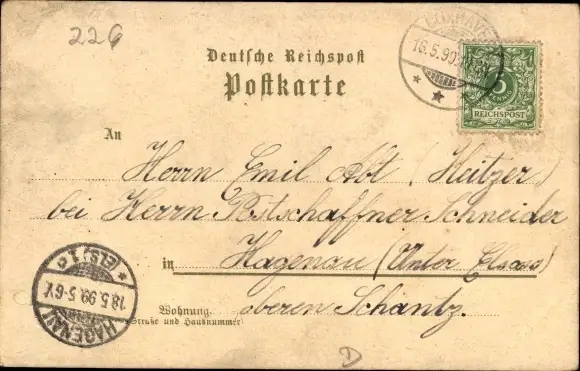 226
Deutsche Reichspost
Postkarte
CUXHAVEN
16.5.99.
5
REICHSPOST
An
Herrn Emil Abt (Heitzer)
bei Herrn Postschaffner Schneider
in Hagenau (Unter Elsass)
Wohnung oberen Schantz.
(Straße und Hausnummer)
HAGENAU
(ELS.) 1
18.5.99.5-6V.
D